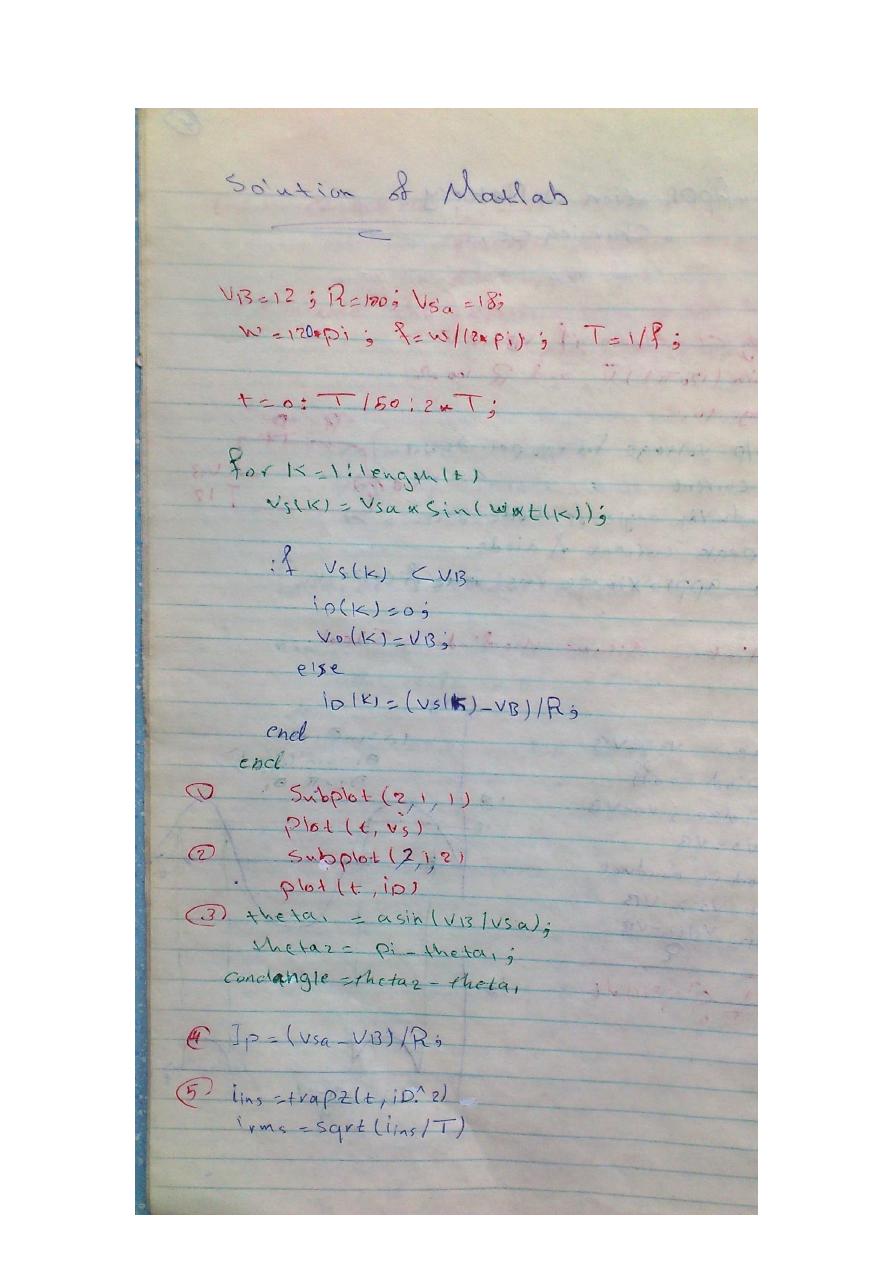 Solution of Matlab
VB=12 ; R=100; Vsa =18;
W =120*pi ; f=w/(2*pi) ; T=1/f ;
t=0: T/50:2*T;
for K=1:length(t)
Vs(K) = Vsa * Sin(w*t(K));
if Vs(K) <VB
iD(K)=0;
Vo(K)=VB;
else
iD(K) = (Vs(K)-VB)/R;
end
end
① Subplot (2,1,1)
Plot (t,vs)
② Subplot (2,1,2)
plot (t,iD)
③ theta1 = asin(VB/Vsa);
theta2= pi-theta1;
Condangle=theta2-theta1
④ Ip=(Vsa-VB)/R;
⑤ iins=trapz(t,iD.^2)
irms=sqrt(iins/T)